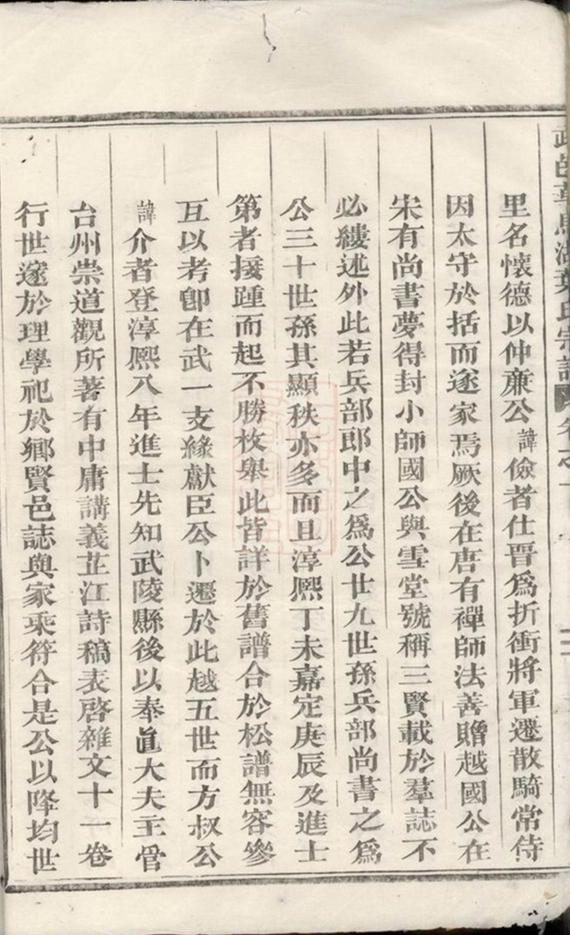 里名懷德以仲亷公諱儉者仕晋爲折衝將軍遷散騎常侍
因太守於括而遂家焉厥後在唐有禪師法善贈越國公在
宋有尚書夢得封小師國公與雪堂號稱三賢載於羣誌不
必縷述外此若兵部郎中之爲公廿九世孫兵部尚書之爲
公三十世孫其顯秩亦多而且淳熈丁未嘉定庚辰及進士
第者接踵而起不勝枚舉此皆詳於舊譜合於松譜無容參
互以考卽在武一支緣獻臣公卜遷於此越五世而方叔公
諱介者登淳熈八年進士先知武陵縣後以奉直大夫主管
台州崇道觀所著有中庸講義芷江詩稿表啓雜文十一卷
行世邃於理學祀於鄉賢邑誌與家乘符合是公以降均世